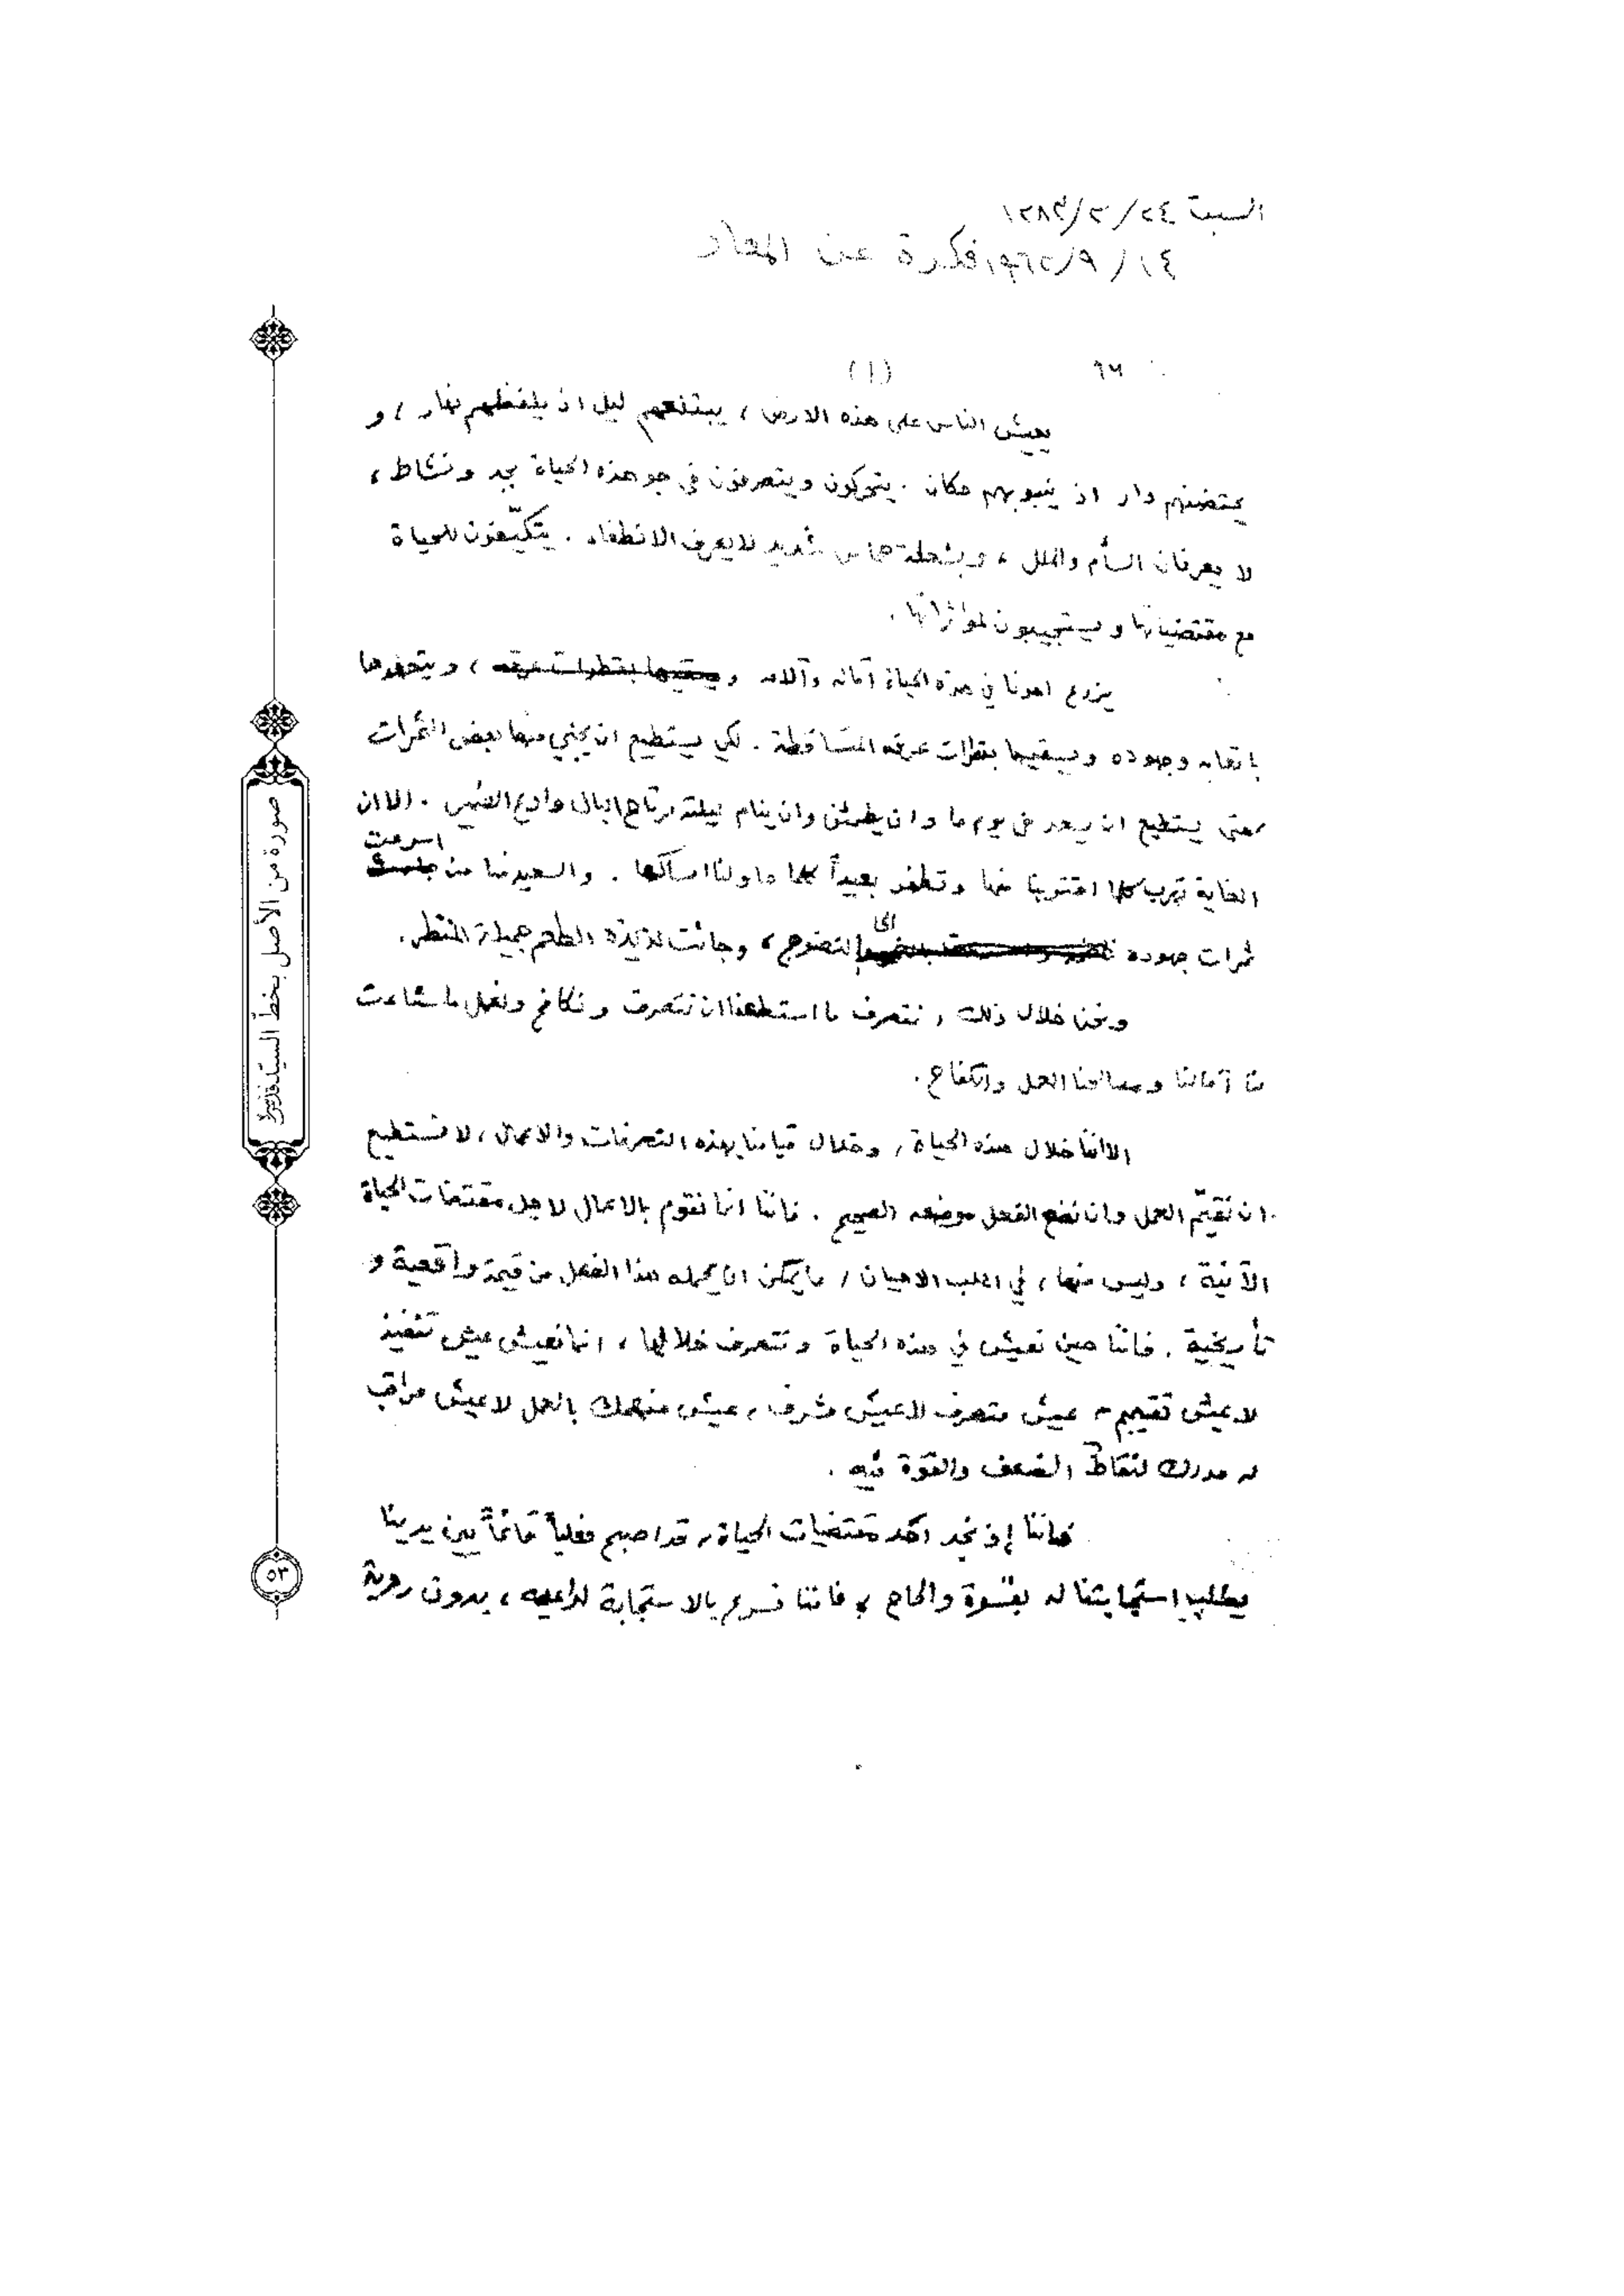 السبت ٢٤/٣/١٣٨٢
١٤/٩/١٩٦٢ فكرة عن المعاد
(١)
يعيش الناس على هذه الارض ، يبتلعهم ليل اذ يلفظهم نهار ، و
يحتضنهم دار اذ ينبو بهم مكان . يتحركون ويتصرفون في جو هذه الحياة بجد ونشاط ،
لا يعرفان السأم والملل ، وبشعلة حماس شديد لا يعرف الانطفاء . يتكيّفون للحياة
مع مقتضياتها ويستجيبون لمؤثراتها .
يزرع احدنا في هذه الحياة آماله وآلامه ويسقيها بقطرات عرقه ، ويتعهدها
باتعابه وجهوده ويسقيها بقطرات عرقه المتساقطة . لكي يستطيع ان يجني منها بعض الثمرات
حتى يستطيع ان يسعد في يوم ما وان يطمئن وان ينام ليلة مرتاح البال وادع الضمير . الا ان
اسرعت
الغاية تهرب كلما اقتربنا منها وتطفر بعيداً كلما حاولنا امساكها . والسعيد منا من
الى
ثمرات جهوده النضوج ، وجائت لذيذة الطعم جميلة المنظر .
ونحن خلال ذلك ، نتصرف ما استطعنا ان نتصرف ونكافح ونعمل ما شاءت
لنا آمالنا ومصالحنا العمل والكفاح .
الا اننا خلال هذه الحياة ، وخلال قيامنا بهذه التصرفات والاعمال ، لا نستطيع
ان نقيّم العمل وان نضع الفعل موضعه الصحيح . فاننا انما نقوم بالاعمال لاجل مقتضيات الحياة
الآنية ، وليس منها ، في اغلب الاحيان ، ما يمكن ان يحمله هذا الفعل من قيمة واقعية و
تأريخية . فاننا حين نعيش في هذه الحياة ونتصرف خلالها ، انما نعيش عيش تنفيذ
لا عيش تقييم ، عيش متصرف لا عيش مشرف ، عيش منهمك بالعمل لا عيش مراقب
له مدرك لنقاط الضعف والقوة فيه .
فاننا إذ نجد احد مقتضيات الحياة ، قد اصبح فعلياً قائماً بين يدينا
يطلب استجابتنا له بقسوة والحاح ، فاننا نسرع بالاستجابة لداعيه ، بدون روية
صورة من الأصل بخطّ السيّد
٥٣